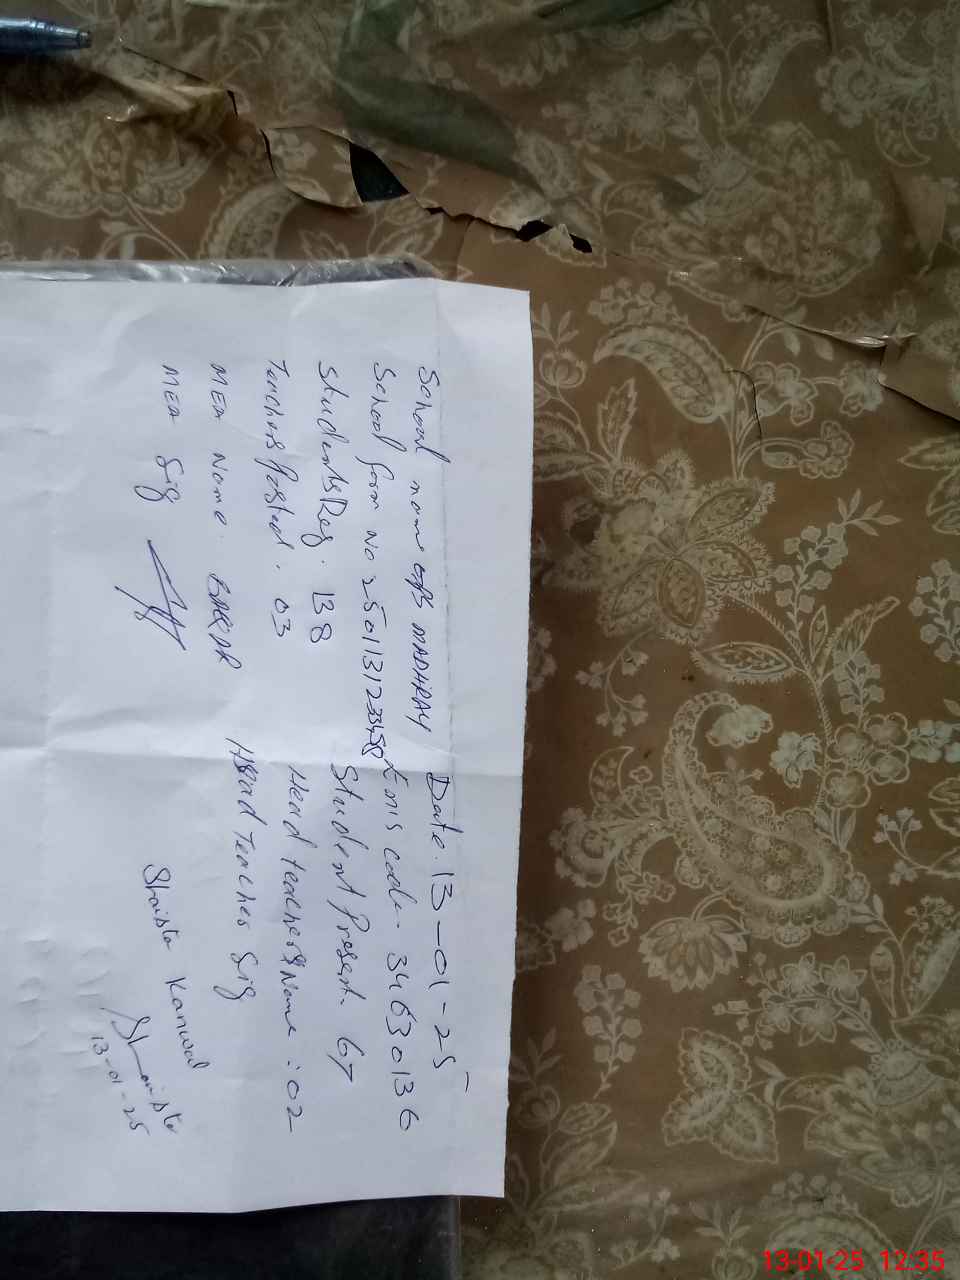 School name GPS MADHRAY Date. 13-01-25
School form No 250113123458 Emis code. 34630136
Students Reg. 138 Student Present. 67
Teachers Posted. 03 Head teachers Name : 02
MEA Name. BABAR Head Teacher Sig
MEA Sig
Shaista Kanwal
Shaista
13-01-25
13-01-25 12:35